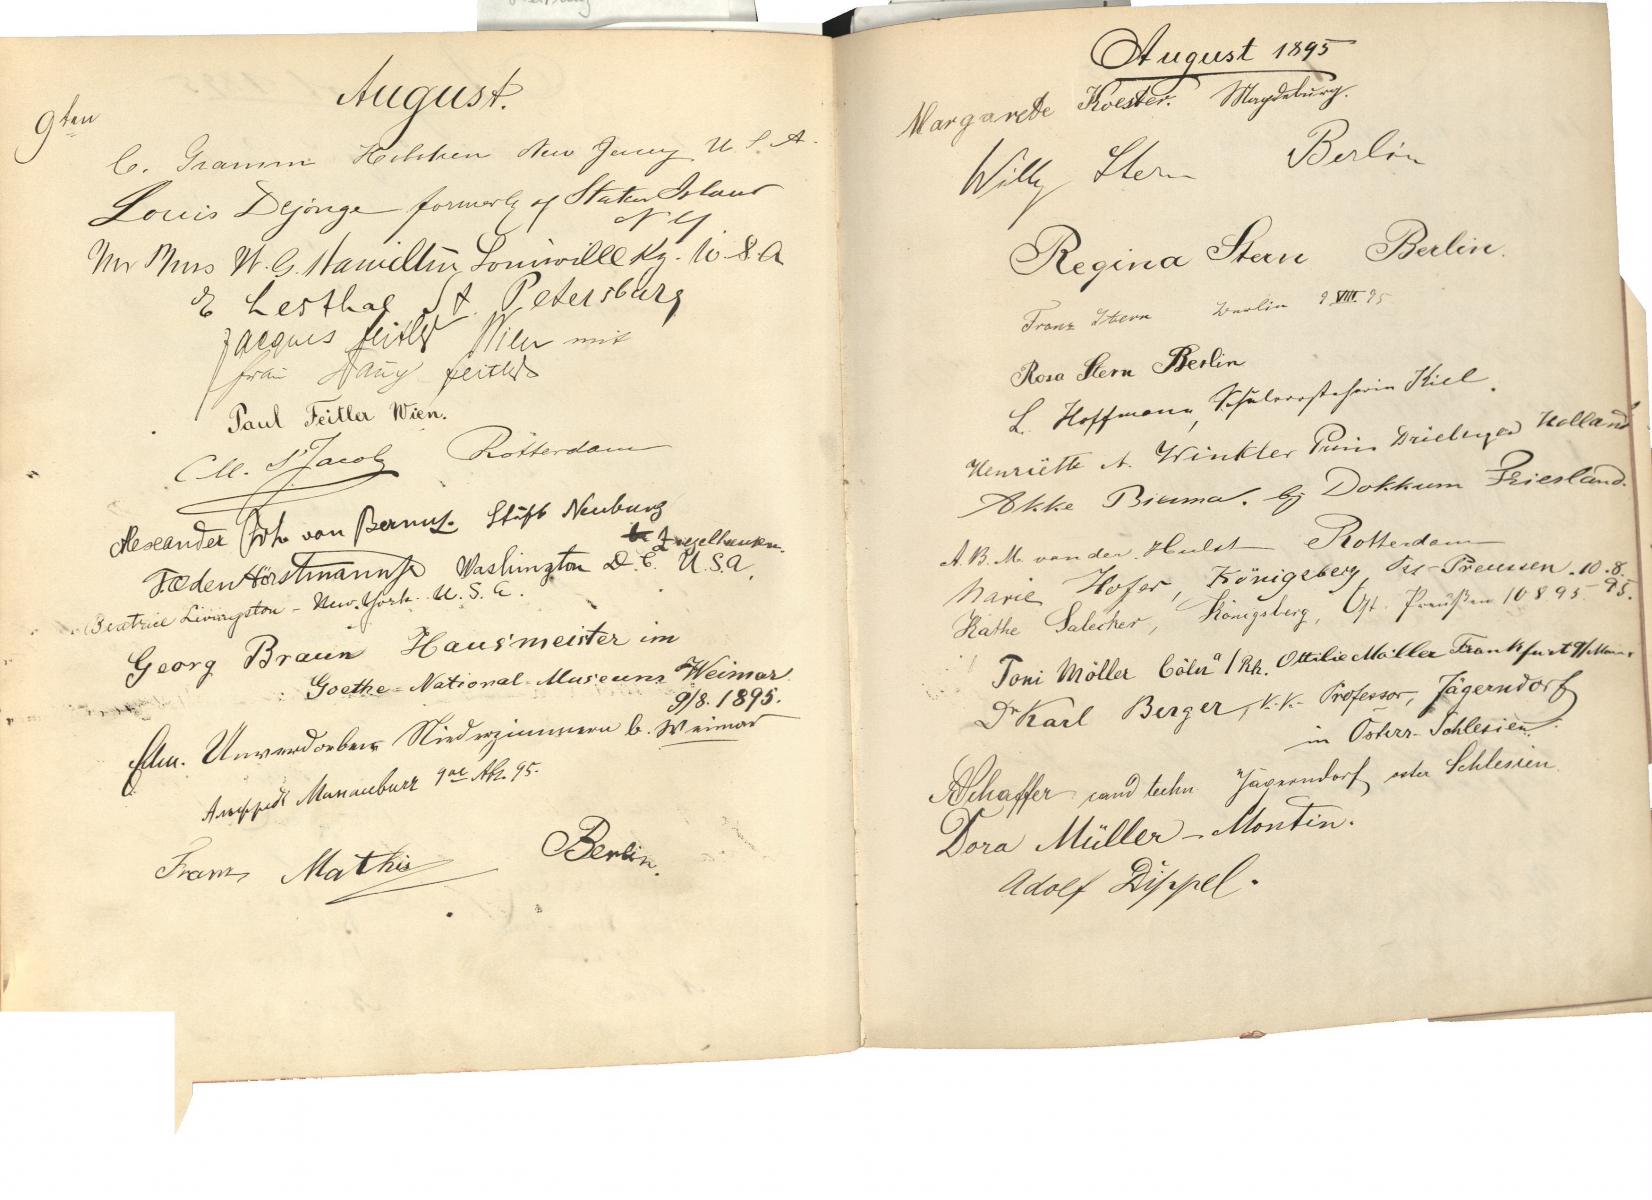 August.
9ten
C. Gramm Hoboken New Jersey U. S. A.
Louis Dejonge formerly of Staten Island
N Y
Mr Mrs W. G. Hamilton Louisville Ky. U. S. A
Lesthal St. Petersburg
Jacques Feitler Wien mit
Frau Feitler
Paul Feitler Wien.
Rotterdam
Alexander von Bernus. Stift Neuburg
b. Ziegelhausen.
Washington D. C. U. S. A.
Beatrice Livingston - New York U. S. A.
Georg Braun Hausmeister im
Goethe-National-Museum Weimar
9/8. 1895.
Unverdorben Niederzimmern b. Weimar
95.
Franz Mathis Berlin.
August 1895
Margarete Koester. Magdeburg.
Willy Stern Berlin
Regina Stern Berlin.
Franz Stern Berlin 9 VIII. 95
Rosa Stern Berlin
L. Hoffmann, Schulvorsteherin Kiel.
Henriëtte A. Winkler Prins Driebergen Holland
Akke Bisma. bij Dokkum Friesland.
A. B. M. van der Hulst Rotterdam
Marie Hofer, Königsberg, Ost-Preussen. 10.8.95.
Käthe Salecker, Königsberg, Ost. Preußen 10 8 95
Toni Möller Cöln a/Rh. Ottilie Möller Frankfurt a/Main
Dr Karl Berger, k.k. Professor, Jägerndorf
in Österr. Schlesien.
Schaffer cand techn Jägerndorf oster Schlesien
Dora Müller-Montin.
Adolf Dippel.